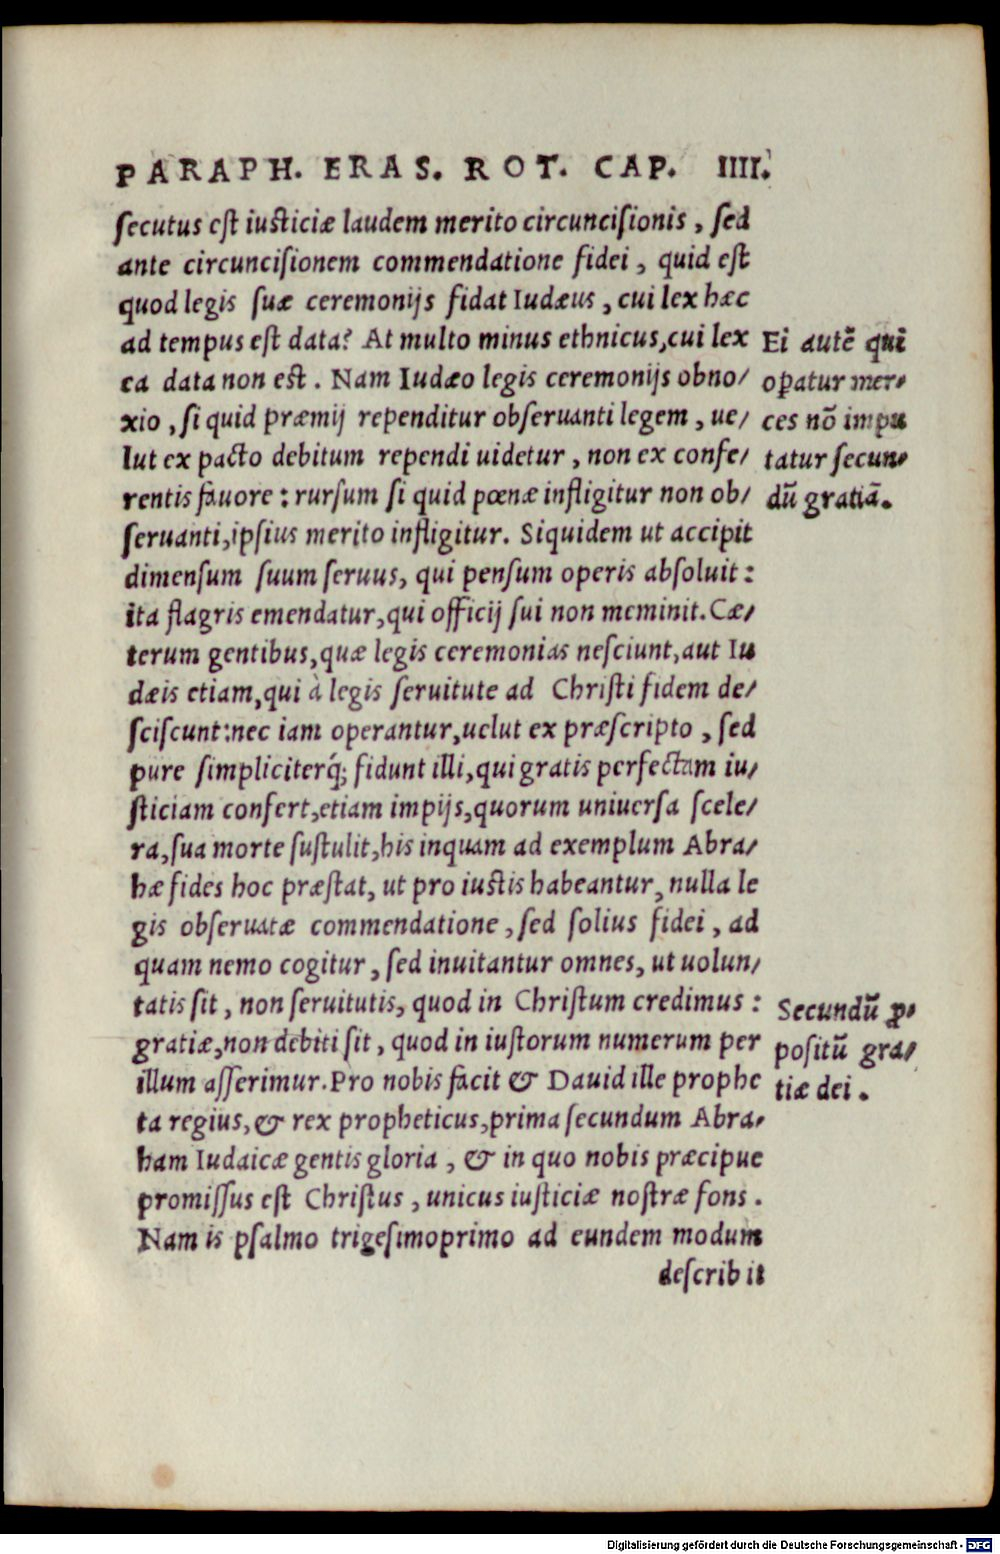 PARAPH. ERAS. ROT. CAP. IIII.
secutus est iusticiæ laudem merito circuncisionis, sed
ante circuncisionem commendatione fidei, quid est
quod legis suæ ceremonijs fidat Iudæus, cui lex hæc
ad tempus est data? At multo minus ethnicus, cui lex
ea data non est. Nam Iudæo legis ceremonijs obno/
xio, si quid præmij rependitur obseruanti legem, ue/
lut ex pacto debitum rependi uidetur, non ex confe/
rentis fauore: rursum si quid pœnæ infligitur non ob/
seruanti, ipsius merito infligitur. Siquidem ut accipit
dimensum suum seruus, qui pensum operis absoluit:
ita flagris emendatur, qui officij sui non meminit. Cæ/
terum gentibus, quæ legis ceremonias nesciunt, aut Iu
dæis etiam, qui à legis seruitute ad Christi fidem de/
sciscunt: nec iam operantur, uelut ex præscripto, sed
pure simpliciterq́; fidunt illi, qui gratis perfectam iu/
sticiam confert, etiam impijs, quorum uniuersa scele/
ra, sua morte sustulit, his inquam ad exemplum Abra/
hæ fides hoc præstat, ut pro iustis habeantur, nulla le
gis obseruatæ commendatione, sed solius fidei, ad
quam nemo cogitur, sed inuitantur omnes, ut uolun/
tatis sit, non seruitutis, quod in Christum credimus:
gratiæ, non debiti sit, quod in iustorum numerum per
illum asserimur. Pro nobis facit & Dauid ille prophe
ta regius, & rex propheticus, prima secundum Abra/
ham Iudaicæ gentis gloria, & in quo nobis præcipue
promissus est Christus, unicus iusticiæ nostræ fons.
Nam is psalmo trigesimoprimo ad eundem modum
describit
Ei autẽ qui
op̱atur mer/
ces nõ impu
tatur secun/
dũ gratiã.
Secundũ ꝓ/
positũ gra/
tiæ dei.
Digitalisierung gefördert durch die Deutsche Forschungsgemeinschaft - DFG